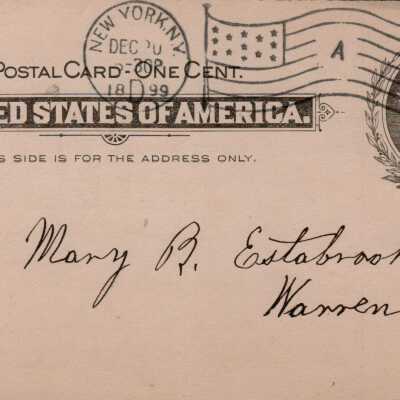 NEW YORK, N.Y.
DEC 20
18 D 99
A
POSTAL CARD-ONE CENT.
ED STATES OF AMERICA.
S SIDE IS FOR THE ADDRESS ONLY.
Mary B. Estabrook
Warren